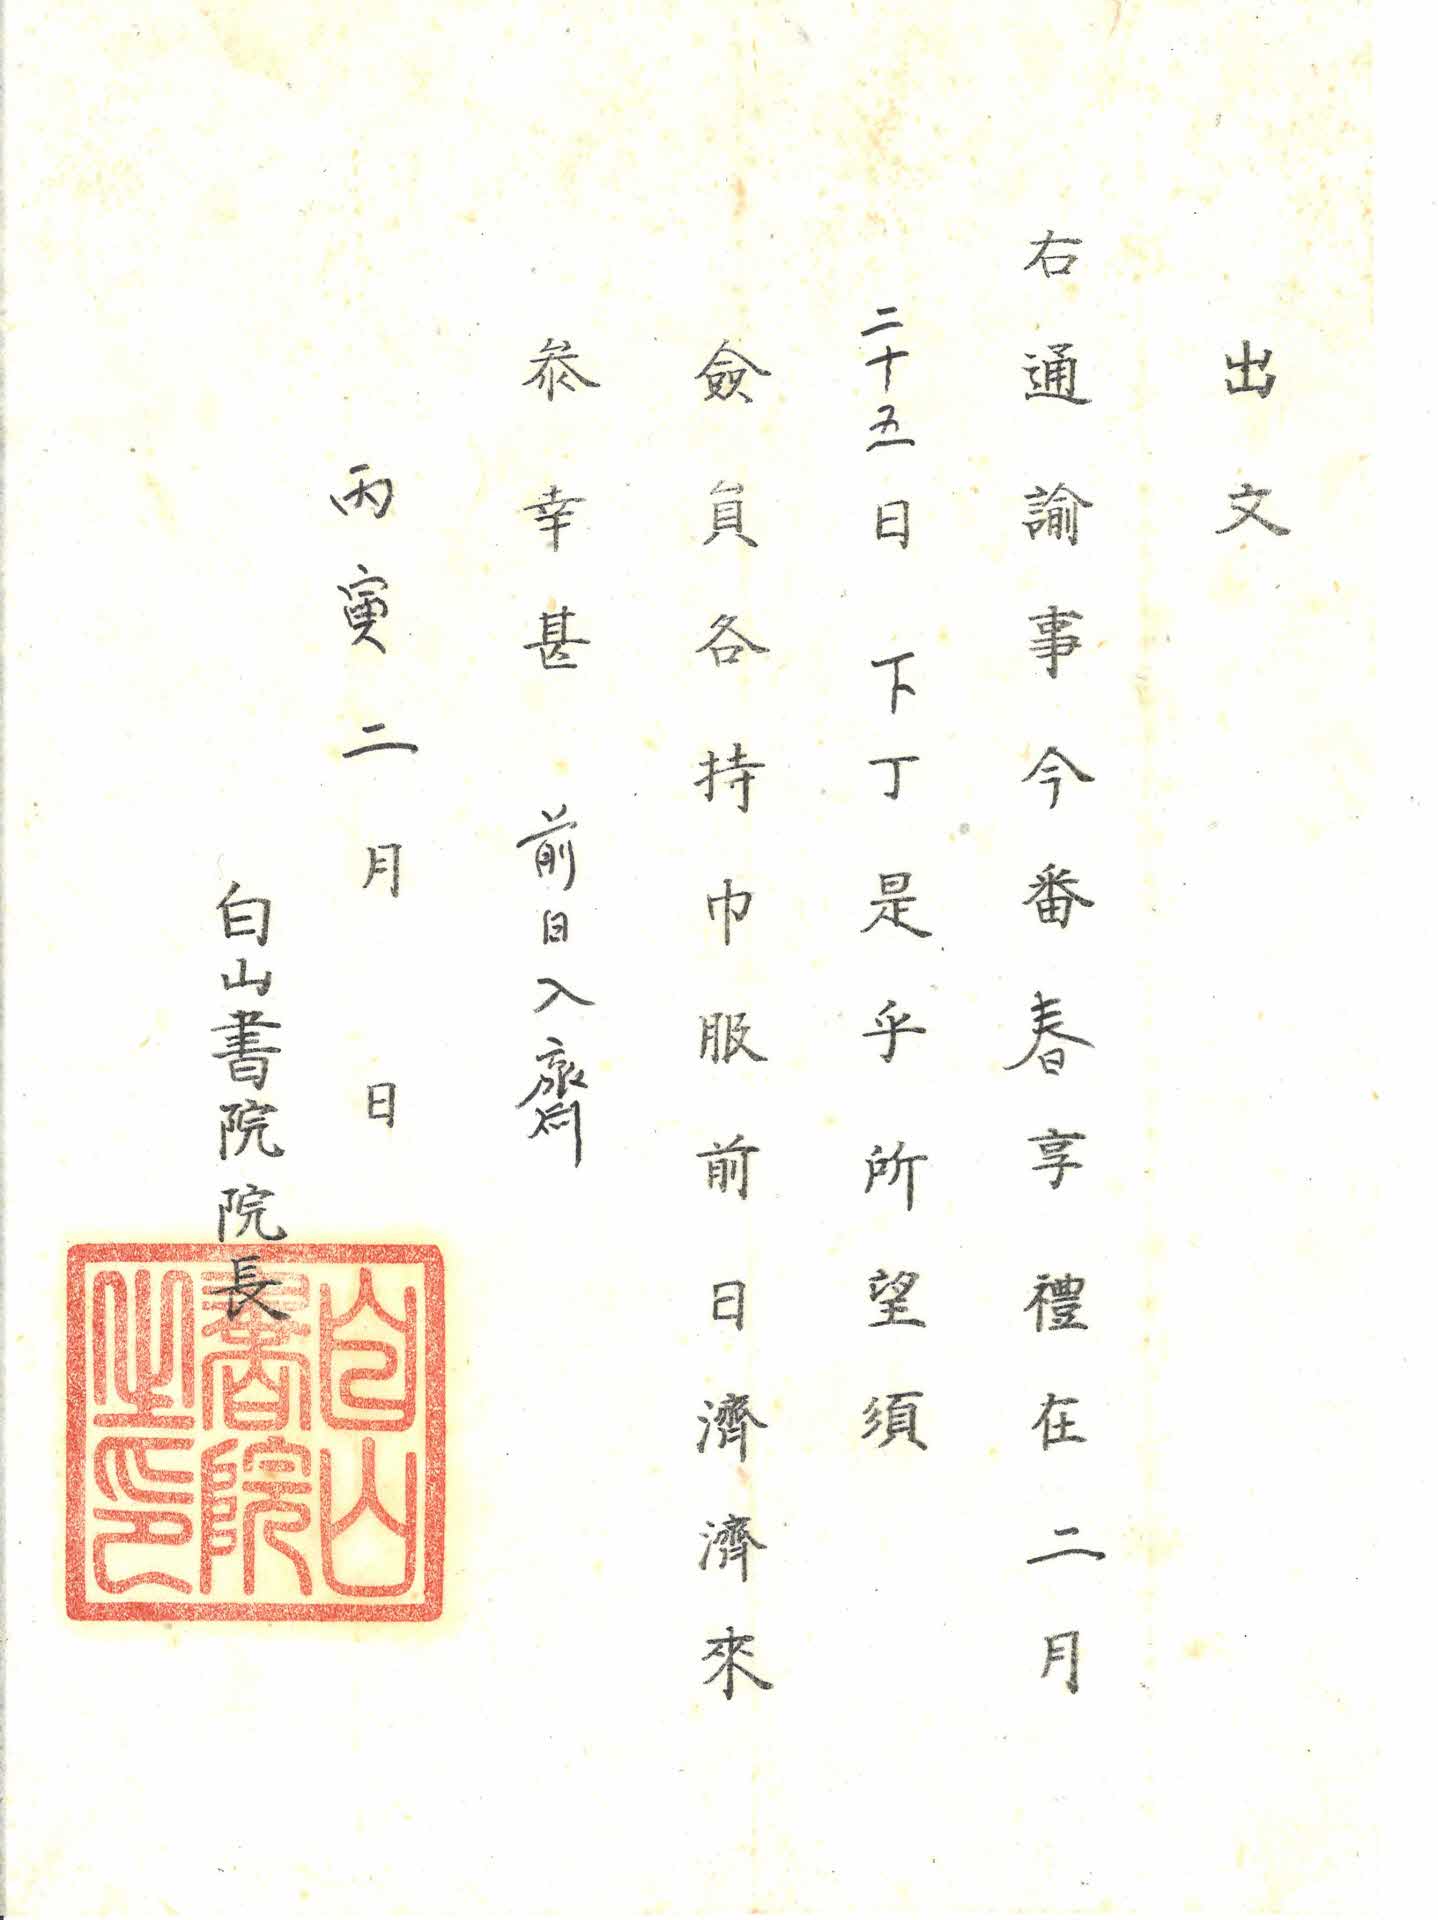 出文
右通諭事今番春享禮在二月
二十五日 下丁是乎所望須
僉員各持巾服前前日濟濟來
叅幸甚 前日入齋
丙寅二月 日
白山書院院長
白山
書院
之印